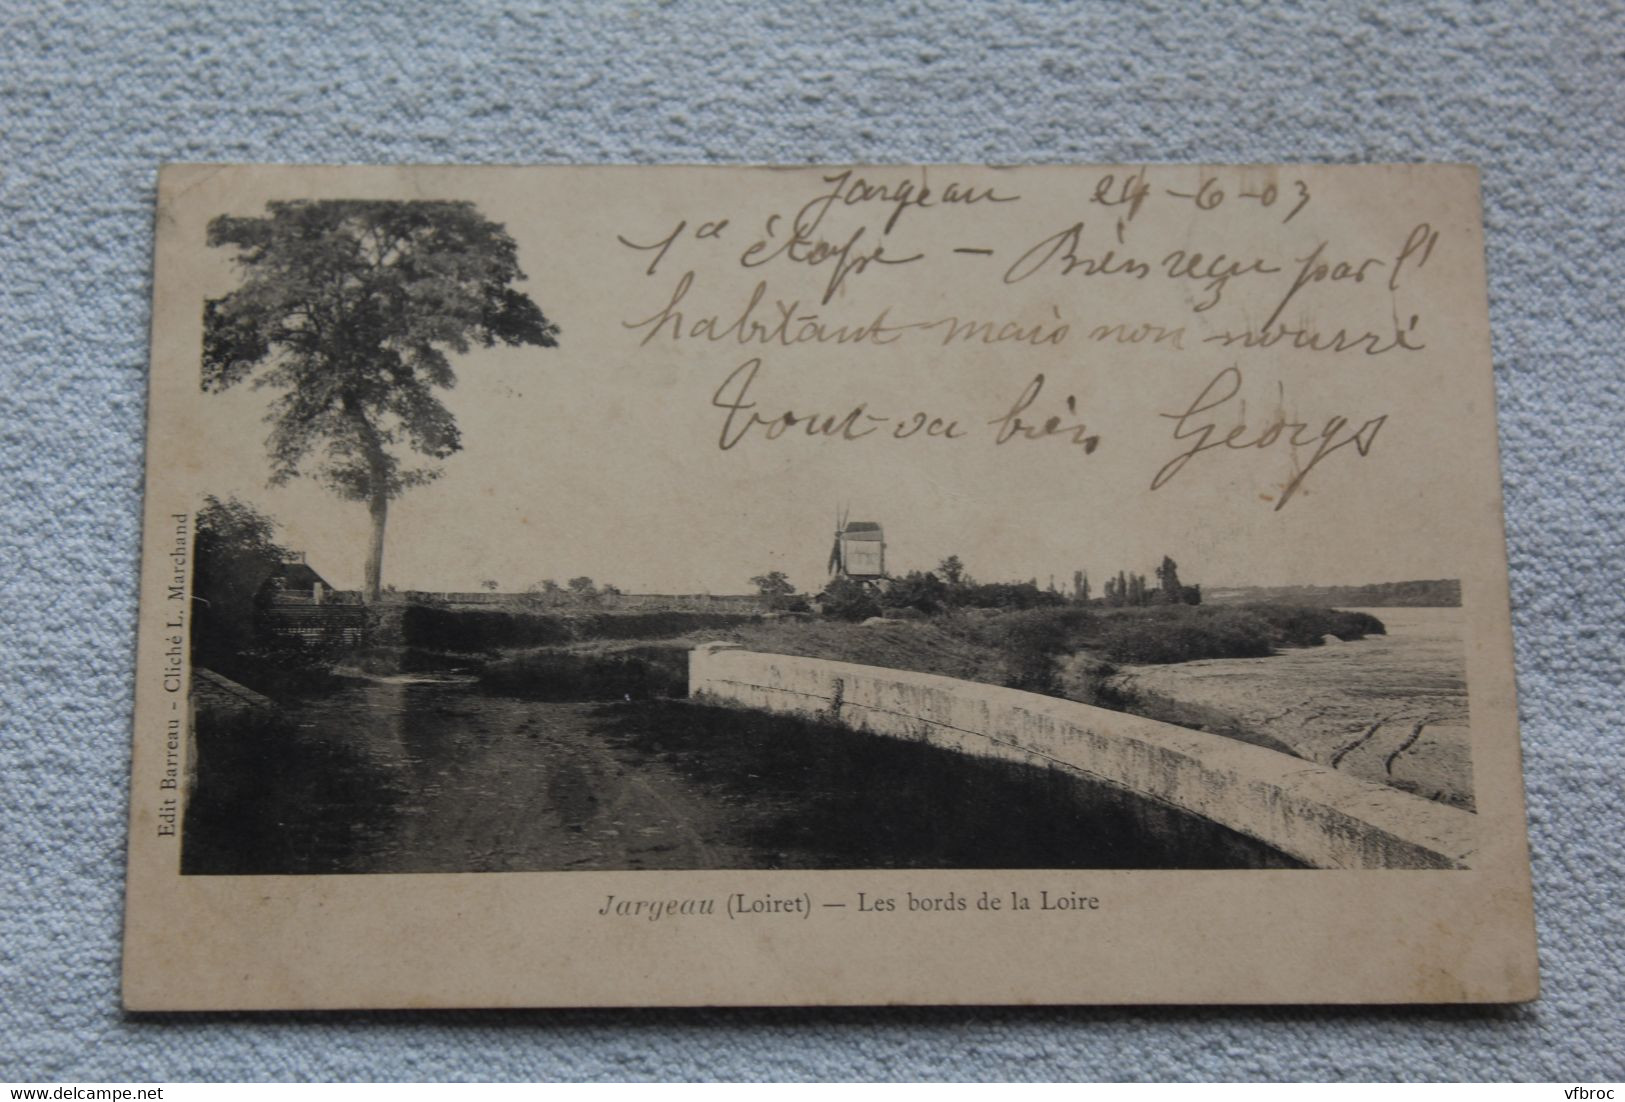 Jargeau 24-6-03
1d étape — Bièn reçu par l'
habitant mais non nourri
Tout va bièn Georgs
Edit Barreau - Cliché L. Marchand
Jargeau (Loiret) — Les bords de la Loire
delcampe.net
vfbroc